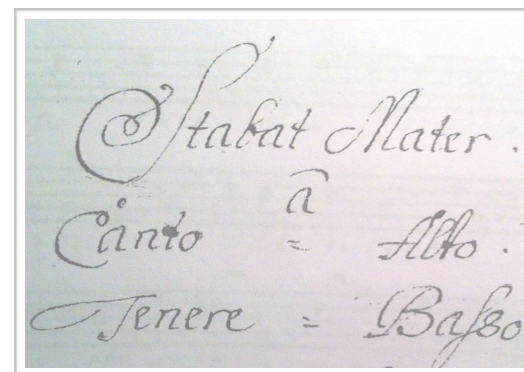 Stabat Mater.
â
Canto = Alto.
Tenere = Basso